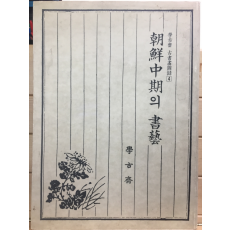 學古齋 古書畫圖錄 4
朝鮮中期의 書藝
學古齋